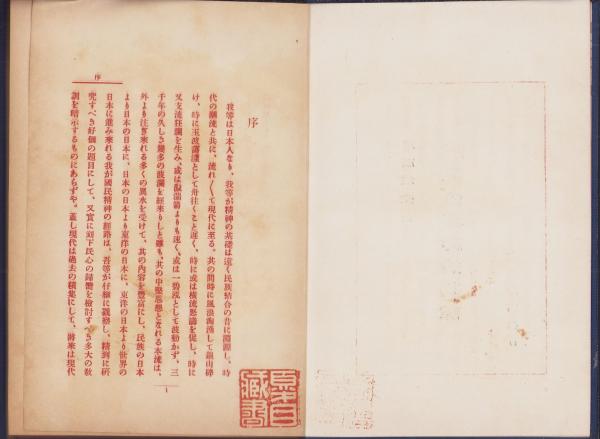 序
序
我等は日本人なり、我等が精神の基礎は遠く民族結合の昔に淵源し、時
代の潮流と共に、流れ〳〵て現代に至る。其の間時に風浪洶湧して銀山碎
け、時に玉波溶漾として舟往くこと遲く、時に或は横流怒濤を促し、時に
又支流狂瀾を生み、或は激湍箭よりも速く、或は一碧滉として波動かず、三
千年の久しき幾多の波瀾を經來りしと雖も、其の中堅思想となれる本流は、
外より注ぎ來れる多くの異水を受けて、其の内容を豐富にし、民族の日本
より日本の日本に、日本の日本より東洋の日本に、東洋の日本より世界の
日本に進み來れる我が國民精神の經路は、吾等が仔細に觀察し、精到に研
究すべき好個の題目にして、又實に刻下民心の歸嚮を檢討すべき多大の敎
訓を暗示するものにあらずや。蓋し現代は過去の積集にして、將來は現代
一
藏書